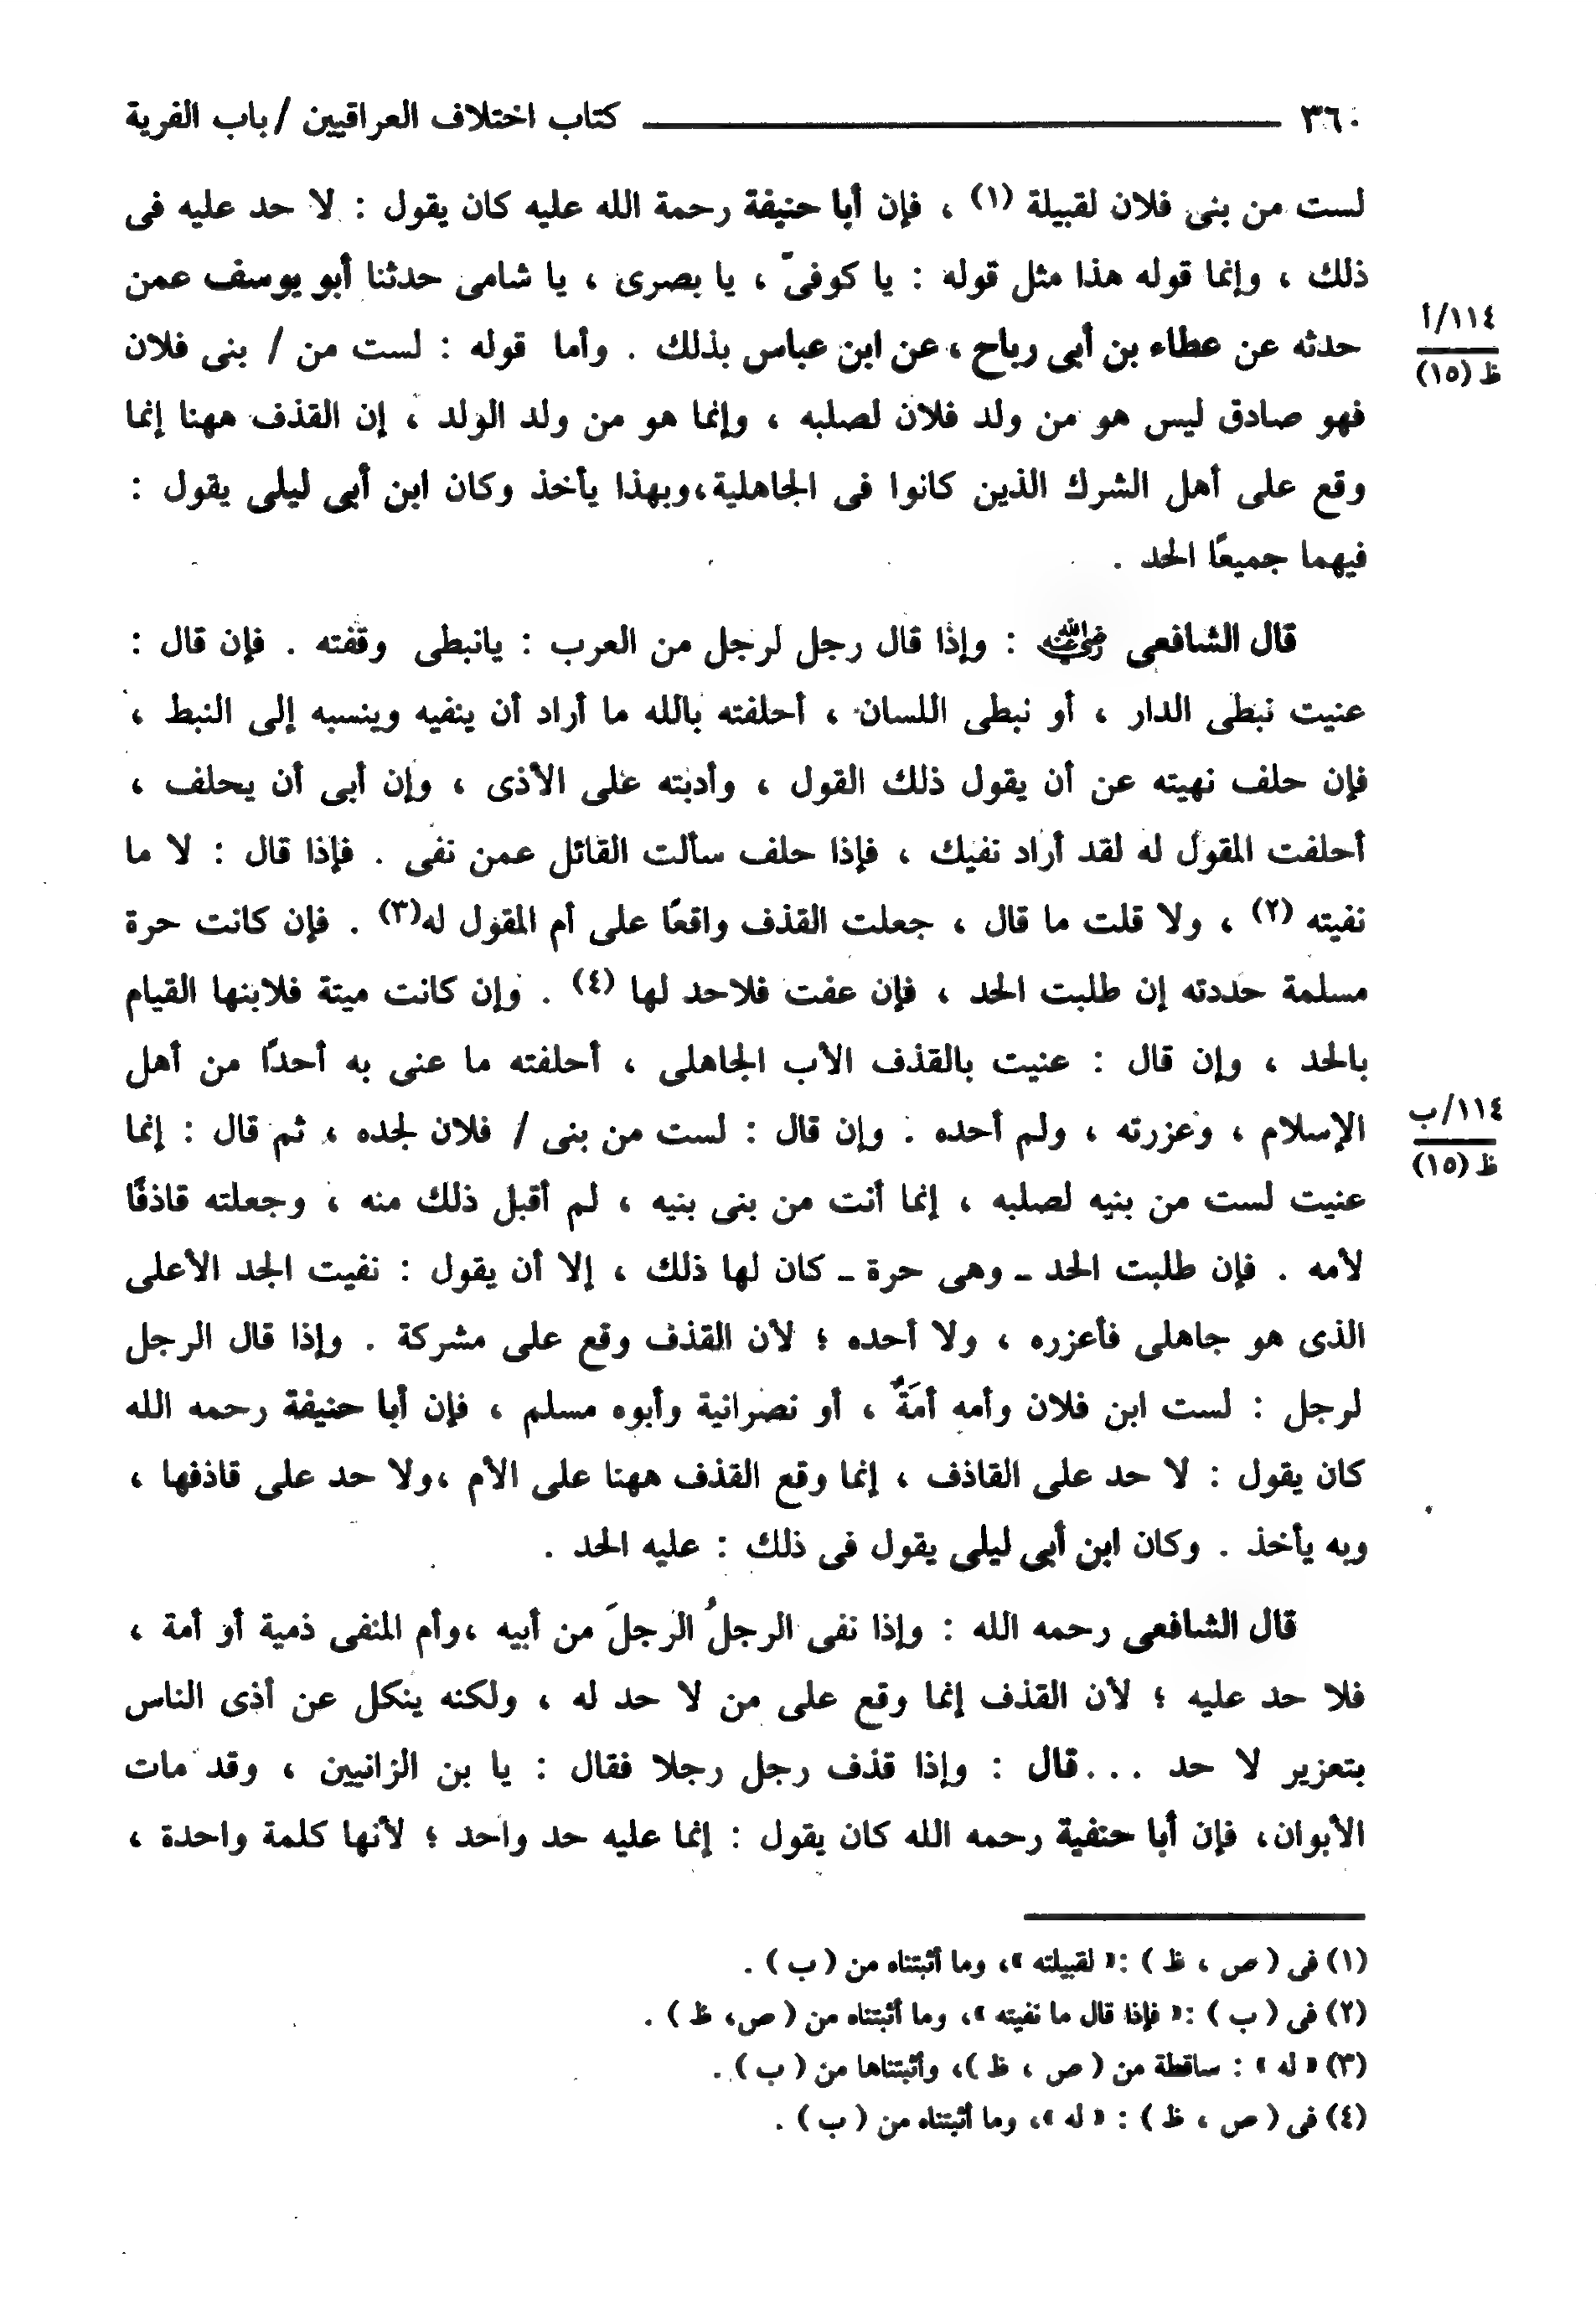 ٣٦٠ كتاب اختلاف العراقيين / باب الفرية
لست من بنى فلان لقبيلة (١) ، فإن أبا حنيفة رحمة الله عليه كان يقول : لا حد عليه فى
ذلك ، وإنما قوله هذا مثل قوله : يا كوفىّ ، يا بصرى ، يا شامى حدثنا أبو يوسف عمن
حدثه عن عطاء بن أبى رباح ، عن ابن عباس بذلك . وأما قوله : لست من / بنى فلان
١١٤/أ
ظ (١٥)
فهو صادق ليس هو من ولد فلان لصلبه ، وإنما هو من ولد الولد ، إن القذف ههنا إنما
وقع على أهل الشرك الذين كانوا فى الجاهلية،وبهذا يأخذ وكان ابن أبى ليلى يقول :
فيهما جميعًا الحد .
قال الشافعى رضي الله عنه : وإذا قال رجل لرجل من العرب : يانبطى وقفته . فإن قال :
عنيت نبطى الدار ، أو نبطى اللسان ، أحلفته بالله ما أراد أن ينفيه وينسبه إلى النبط ،
فإن حلف نهيته عن أن يقول ذلك القول ، وأدبته على الأذى ، وإن أبى أن يحلف ،
أحلفت المقول له لقد أراد نفيك ، فإذا حلف سألت القائل عمن نفى . فإذا قال : لا ما
نفيته (٢) ، ولا قلت ما قال ، جعلت القذف واقعًا على أم المقول له(٣) . فإن كانت حرة
مسلمة حددته إن طلبت الحد ، فإن عفت فلاحد لها (٤) . وإن كانت ميتة فلابنها القيام
بالحد ، وإن قال : عنيت بالقذف الأب الجاهلى ، أحلفته ما عنى به أحدًا من أهل
الإسلام ، وعزرته ، ولم أحده . وإن قال : لست من بنى / فلان لجده ، ثم قال : إنما
١١٤/ب
ظ (١٥)
عنيت لست من بنيه لصلبه ، إنما أنت من بنى بنيه ، لم أقبل ذلك منه ، وجعلته قاذفًا
لأمه . فإن طلبت الحد ـ وهى حرة ـ كان لها ذلك ، إلا أن يقول : نفيت الجد الأعلى
الذى هو جاهلى فأعزره ، ولا أحده ؛ لأن القذف وقع على مشركة . وإذا قال الرجل
لرجل : لست ابن فلان وأمه أمَةٌ ، أو نصرانية وأبوه مسلم ، فإن أبا حنيفة رحمه الله
كان يقول : لا حد على القاذف ، إنما وقع القذف ههنا على الأم ،ولا حد على قاذفها ،
وبه يأخذ . وكان ابن أبى ليلى يقول فى ذلك : عليه الحد .
قال الشافعى رحمه الله : وإذا نفى الرجلُ الرجلَ من أبيه ،وأم المنفى ذمية أو أمة ،
فلا حد عليه ؛ لأن القذف إنما وقع على من لا حد له ، ولكنه ينكل عن أذى الناس
بتعزير لا حد ...قال : وإذا قذف رجل رجلا فقال : يا بن الزانيين ، وقد مات
الأبوان، فإن أبا حنفية رحمه الله كان يقول : إنما عليه حد واحد ؛ لأنها كلمة واحدة ،
(١) فى ( ص ، ظ ) :« لقبيلته »، وما أثبتناه من ( ب ) .
(٢) فى ( ب ) :« فإذا قال ما نفيته »، وما أثبتناه من ( ص، ظ ) .
(٣) « له » : ساقطة من ( ص ، ظ )، وأثبتناها من ( ب ) .
(٤) فى ( ص ، ظ ) : « له »، وما أثبتناه من ( ب ) .